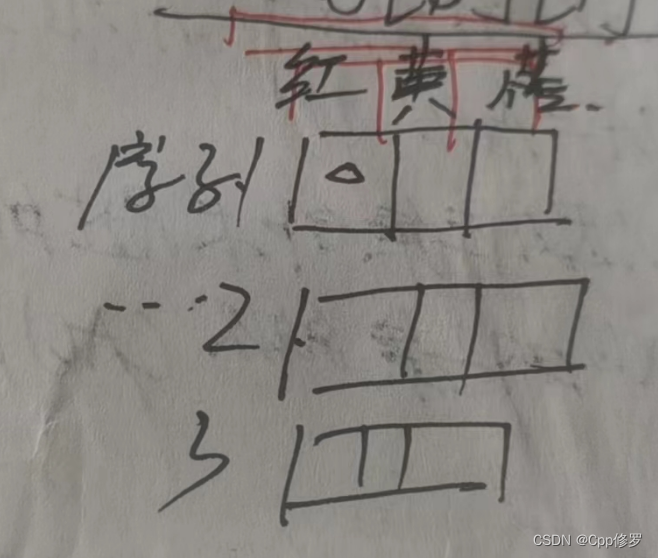 红 黄 蓝
序列
--- 2
3
CSDN @Cpp修罗